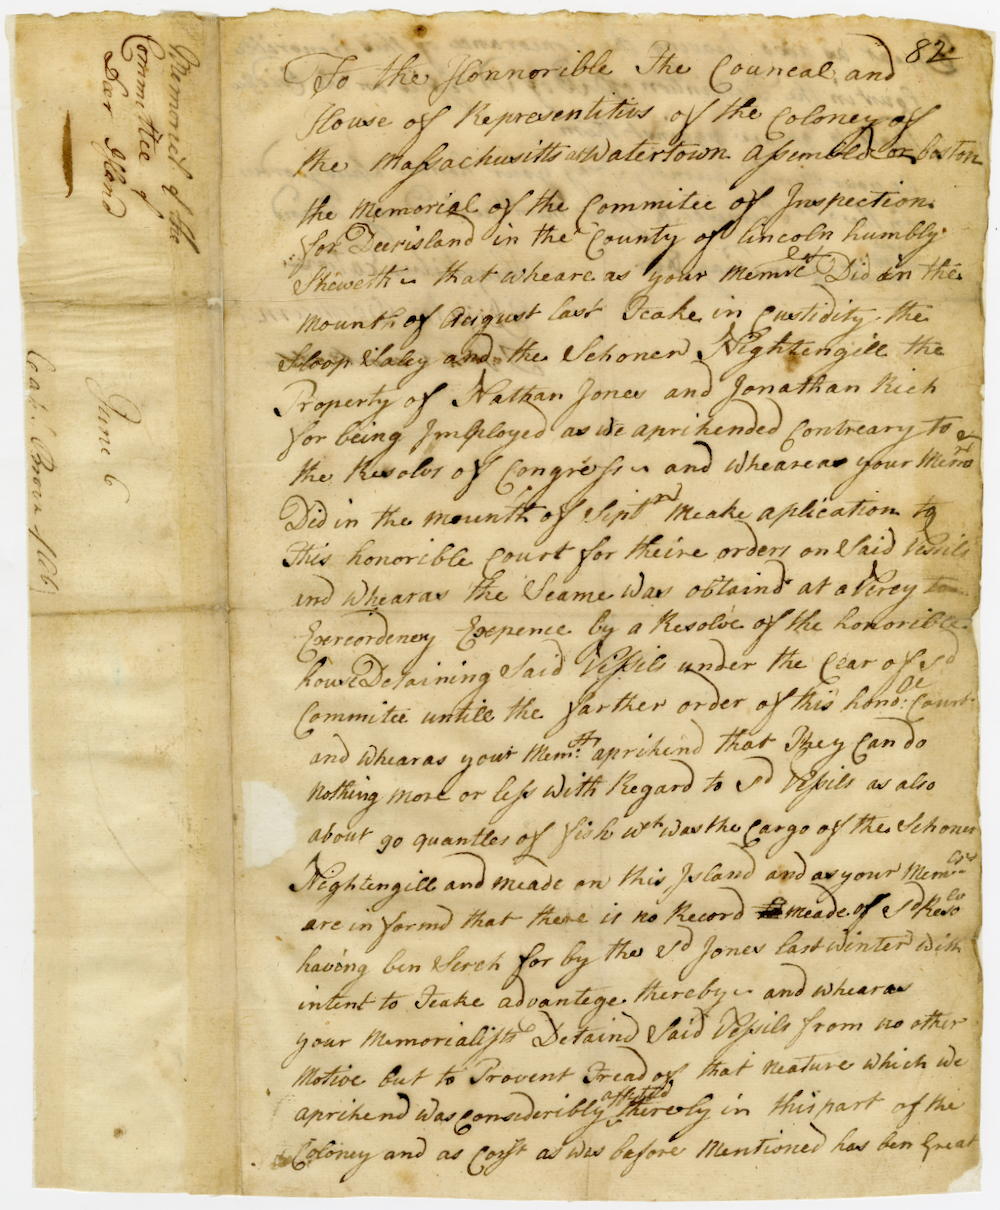 82
To the Honnorible The Counceal and
House of Representitivs of the Coloney of
the Massachusitts at Watertown assembled or boston
the memorial of the Commitee of Inspection
for Deerisland in the County of lincoln humbly
Sheweth that wheare as your Memrs Did in the
mounth of August last Teake in Custidity the
Sloop Saley and the Schoner Nightengill the
Property of Nathan Jones and Jonathan Rich
for being Imployed as we aprihended Contreary to
the Resolvs of Congress and wheareas your Memrs
Did in the mounth of Siptm meake aplication to
This honorible Court for theire orders on Said Vessils
and whearas the Seame was obtaind at a Verey
Exercordeney Expence by a Resolve of the honorible
house Detaining Said Vessils under the Cear of sd
Commitee untill the farther order of this honoble Court
and whearas your Memts aprihend that They Can do
nothing more or less with Regard to sd Vessils as also
about 90 quantles of fish wh was the Cargo of the Schoner
Nightengill and meade on this Island and as your Mem
are informd that there is no Record meade of sd Reso
having ben Serch for by the sd Jones last winter with
intent to Teake advantege thereby and whearas
your Memorialists Detaind Said Vessils from no other
motive but to Provent Tread of that neature which we
aprihend was Consideribly affected thereby in this part of the
Coloney and as Cost as was before mentioned has ben Great
Memorial of the
Committee of
Dear Island
June 6